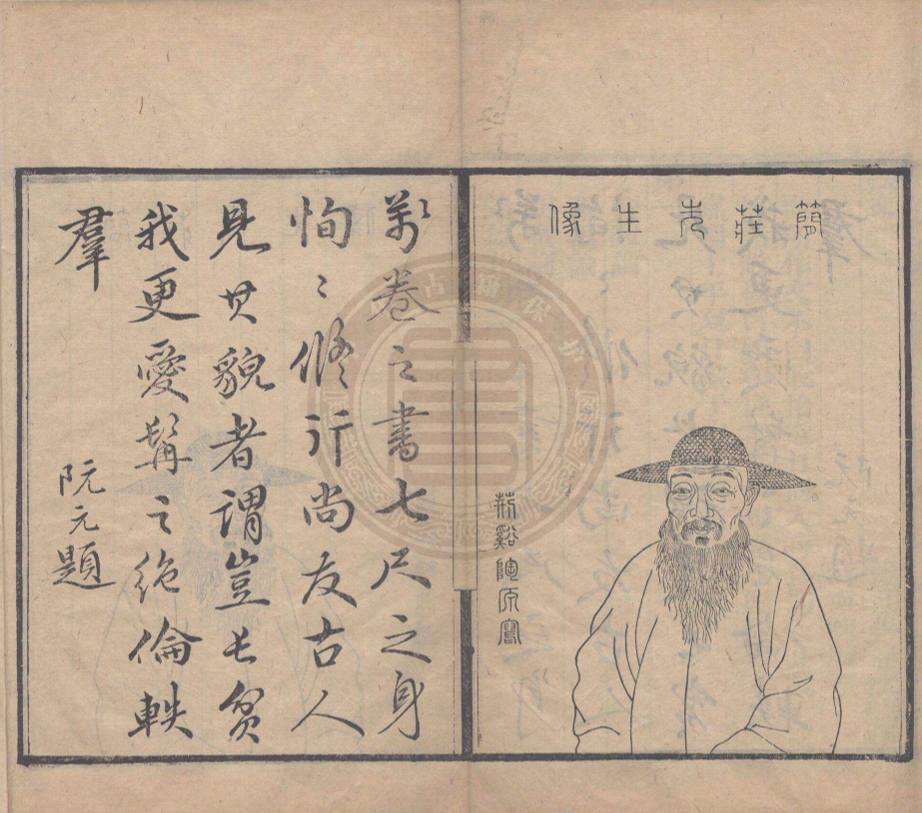 簡莊先生像
谿陶寫
萬卷之書七尺之身
恂〻修行尚友古人
見其貌者謂豈長貧
我更愛髯之絶倫軼
羣
阮元題